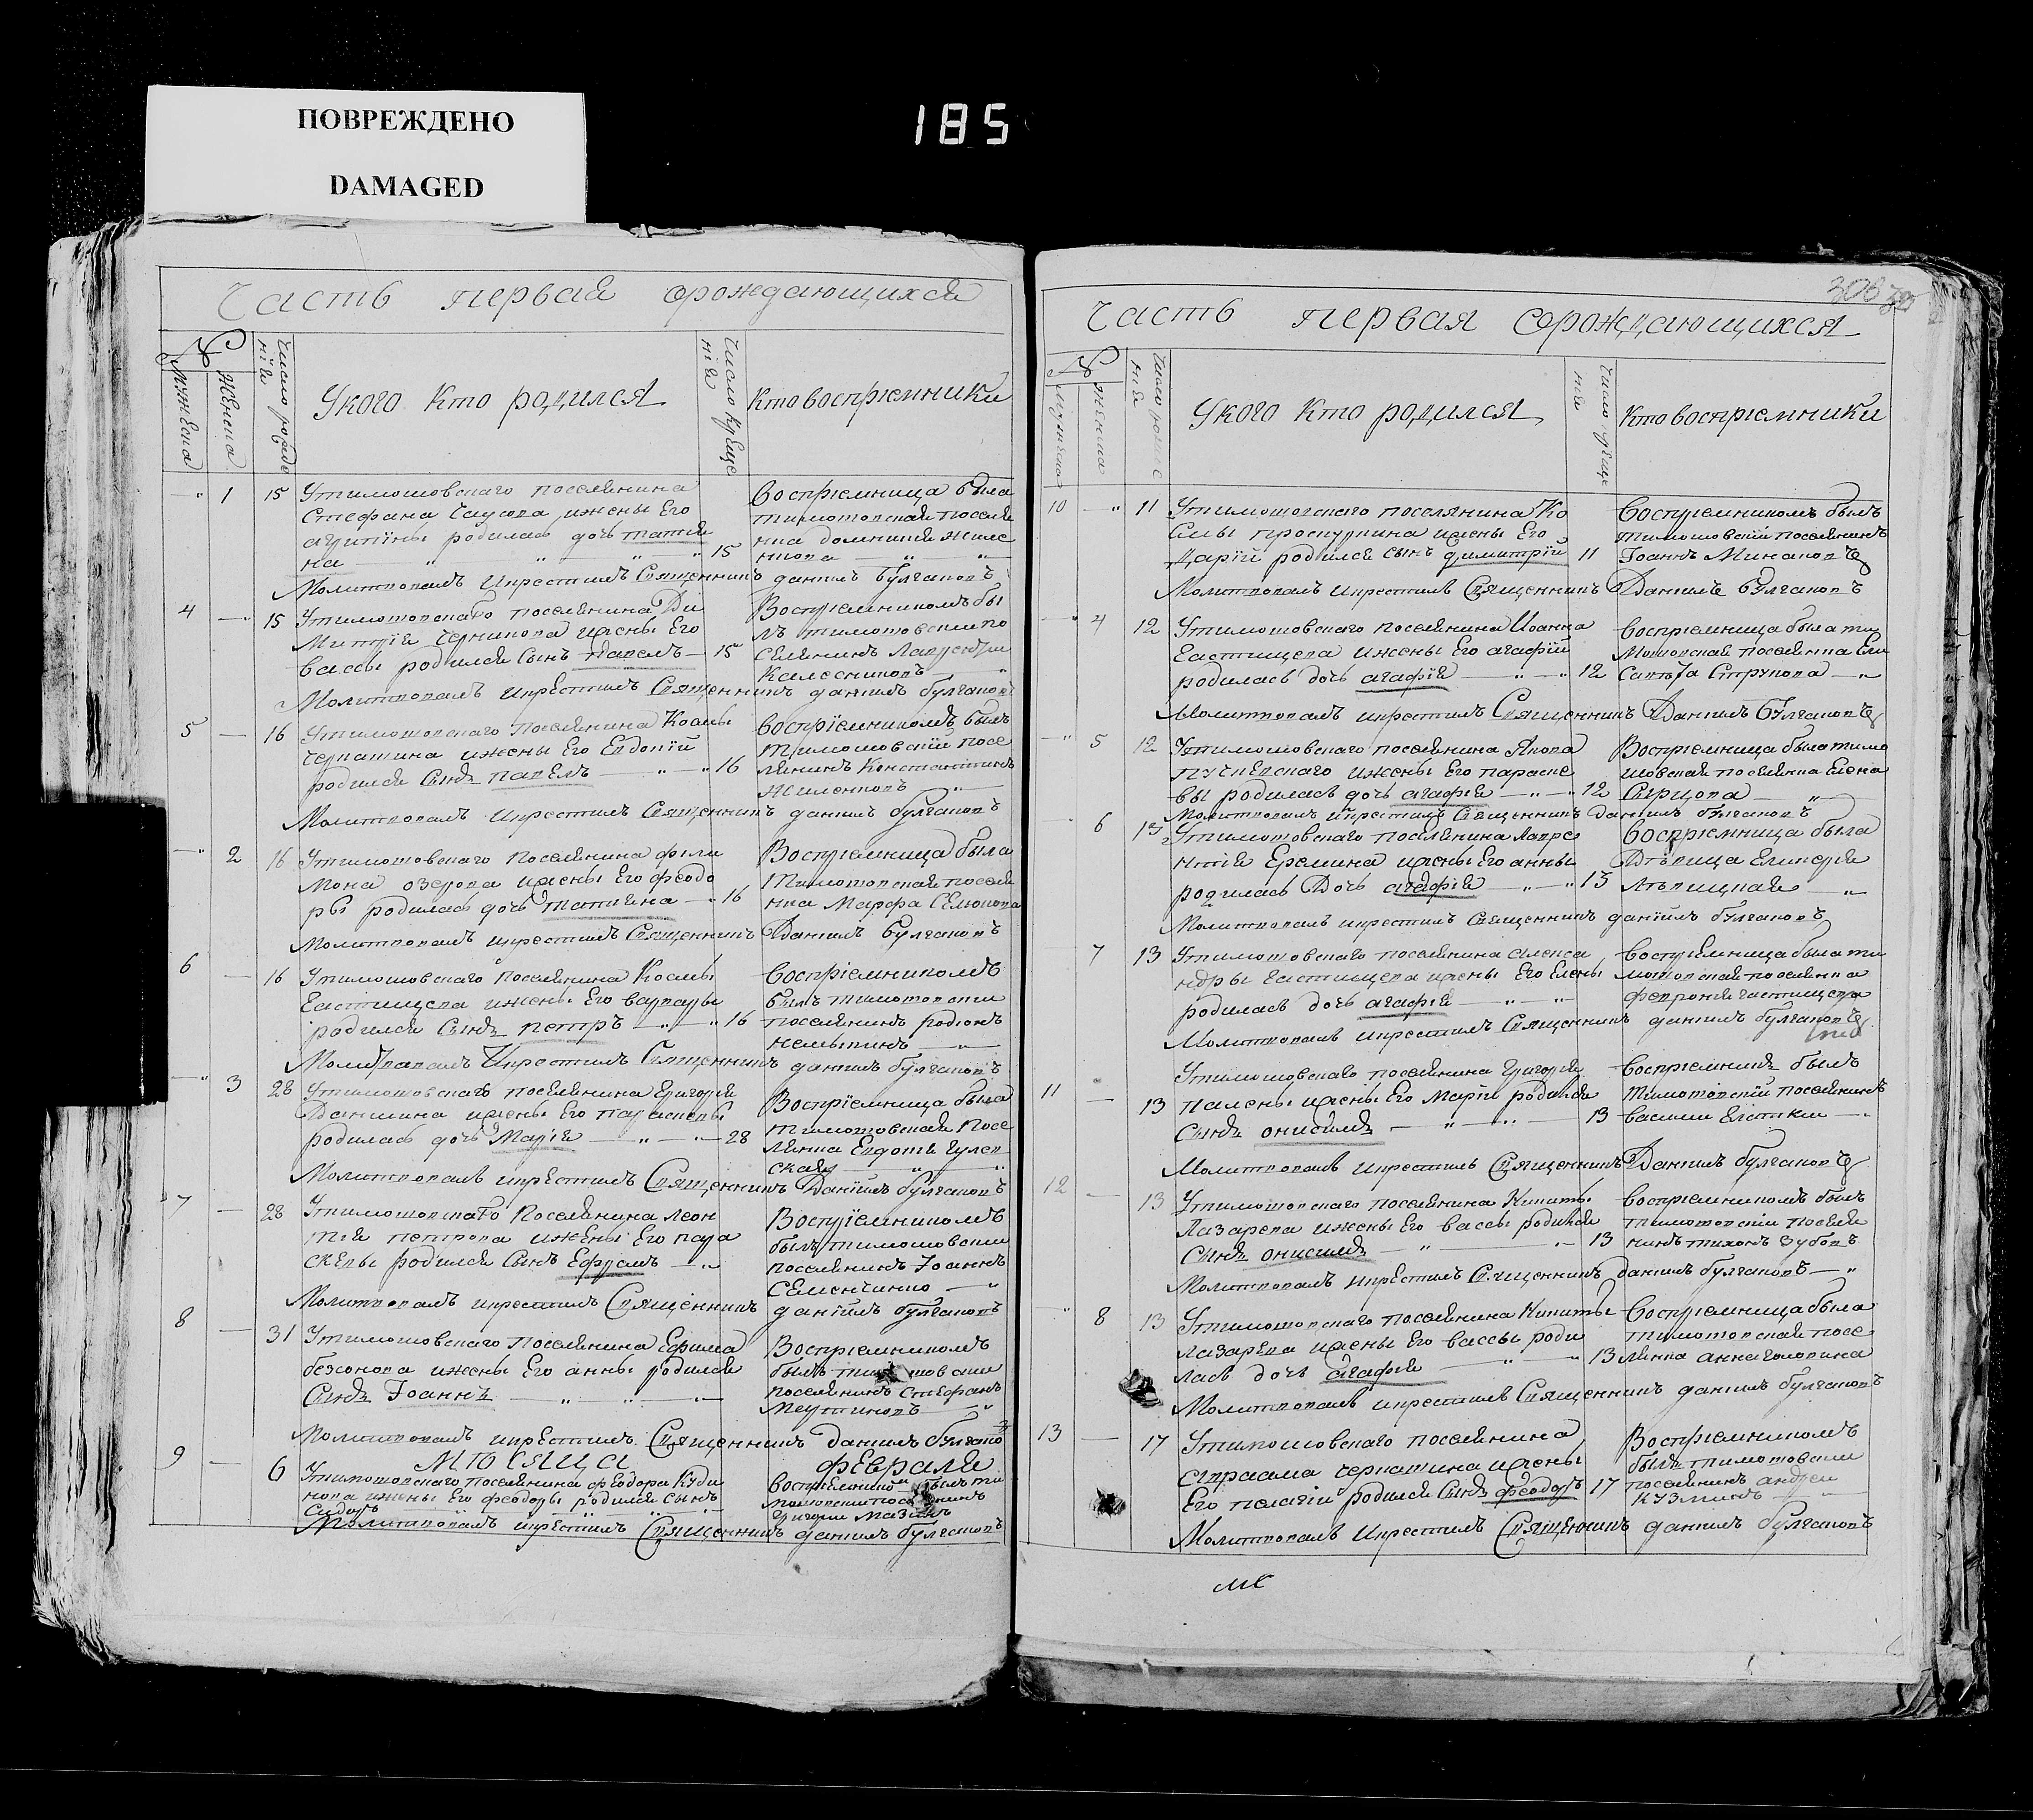 ПОВРЕЖДЕНО
DAMAGED
185
Часть первая орождающихся
№
Мужеска
Женска
Число рожде
нія
Укого Кто родился
Число Креще
нія
Кто воспріемники
1 15 Утимошовскаго поселянина
Стефана ижены Его
агрипины родилась дочь татія
на 15
Воспріемница была
тимошовская поселя
нка домникія
Молитвовалъ икрестилъ Священникъ данiилъ булгаковъ
4 15 Утимошовскаго поселянина Ди
митрія Черникова ижены Его
вассы родился сынъ павелъ 15
Воспріемникомъ бы
лъ тимошовский по
селянинъ Лаврентий
Колесниковъ
Молитвовалъ икрестилъ Священникъ данiилъ булгаковъ
5 16 Утимошовскаго поселянина Космы
ижены Его Евдокій
родился Сынъ павелъ 16
Воспріемникомъ былъ
Тимошовскій посе
лянинъ Константинъ
Молитвовалъ икрестилъ Священникъ данiилъ булгаковъ
2 16 Утимошовскаго поселянина фили
мона озерова ижены Его феодо
ры родилась дочь татіяна 16
Воспріемница была
Тимошовская поселя
нка Марфа
Молитвовалъ икрестилъ Священникъ Данiилъ булгаковъ
6 16 Утимошовскаго поселянина Космы
Частищева ижены Его варвары
родился Сынъ петръ 16
Воспріемникомъ
былъ тимошовский
поселянинъ родіонъ
Молитвовалъ икрестилъ Священникъ данiилъ булгаковъ
3 28 Утимошовскаго поселянина Григорія
Данилина ижены Его параскевы
родилась дочь Марія 28
Воспріемница была
тимошовская посе
лянка Евдокія
ская
Молитвовалъ икрестилъ Священникъ Даніилъ булгаковъ
7 28 Утимошовскаго поселянина леон
тія петрова ижены Его пара
скевы родился Сынъ Ефремъ
Воспріемникомъ
былъ тимошовский
поселянинъ Іоаннъ
Семенченко
Молитвовалъ икрестилъ Священникъ даніилъ булгаковъ
8 31 Утимошовскаго поселянина Ефима
безсонова ижены Его анны родился
Сынъ Іоаннъ
Воспріемникомъ
былъ тимошовский
поселянинъ Стефанъ
Молитвовалъ икрестилъ Священникъ данiилъ булгаков
Мѣсяца февраля
9 6 Утимошовскаго поселянина феодора Куди
нова ижены Его феодоры родился сынъ
Сидоръ
Воспріемникомъ былъ ти
мошовский поселянинъ
Григорий Мазинъ
Молитвовалъ икрестилъ Священникъ данiилъ булгаковъ
306
Часть первая орождающихся
№
Мужеска
женска
Число рожде
нія
Укого Кто родился
Число Креще
нія
Кто воспріемники
10 11 Утимошовскаго поселянина Ко
смы проскурнина ижены Его
Дарій родился сынъ димитрій 11
Воспріемникомъ былъ
тимошовскій поселянинъ
Іоаннъ Минаковъ
Молитвовалъ икрестилъ Священникъ Данiилъ булгаковъ
4 12 Утимошовскаго поселянина Иоанна
Частищева ижены Его агафій
родилась дочь агафія 12
Воспріемница была ти
мошовская поселянка Ели
савета Струкова
Молитвовалъ икрестилъ Священникъ Данiилъ булгаковъ
5 12 Утимошовскаго поселянина Якова
ижены Его параске
вы родилась дочь агафія 12
Воспріемница была тимо
шовская поселянка Елена
Сырцова
Молитвовалъ икрестилъ Священникъ данiилъ булгаковъ
6 13 Утимошовскаго поселянина лавре
нтія Еремина ижены Его анны
родилась Дочь агафія 13
Воспріемница была
Дѣвица
Молитвовалъ икрестилъ Священникъ даніилъ булгаковъ
7 13 Утимошовскаго поселянина алекса
ндры Частищева ижены Его Елены
родилась дочь агафія
Воспріемница была ти
мошовская поселянка
феврония частищева
Молитвовалъ икрестилъ Священникъ данiилъ булгаковъ
11 13 Утимошовскаго поселянина Григорія
ижены Его Марій родился
Сынъ онисимъ 13
Воспріемникъ былъ
Тимошовскій поселянинъ
василий
Молитвовалъ икрестилъ Священникъ Данiилъ булгаковъ
12 13 Утимошовскаго поселянина Никиты
Лазарева ижены Его вассы родился
Сынъ онисимъ 13
Воспріемникомъ былъ
тимошовскій поселя
нинъ тихонъ Зубовъ
Молитвовалъ икрестилъ Священникъ данiилъ булгаковъ
8 13 Утимошовскаго поселянина Никиты
лазарева ижены Его вассы роди
лась дочь агафія 13
Воспріемница была
тимошовская посе
лянка анна головина
Молитвовалъ икрестилъ Священникъ данiилъ булгаковъ
13 17 Утимошовскаго поселянина
ижены
Его пелагіи родился Сынъ феодоръ 17
Воспріемникомъ
былъ тимошовский
поселянинъ андрей
Кузминъ
Молитвовалъ икрестилъ Священникъ данiилъ булгаковъ